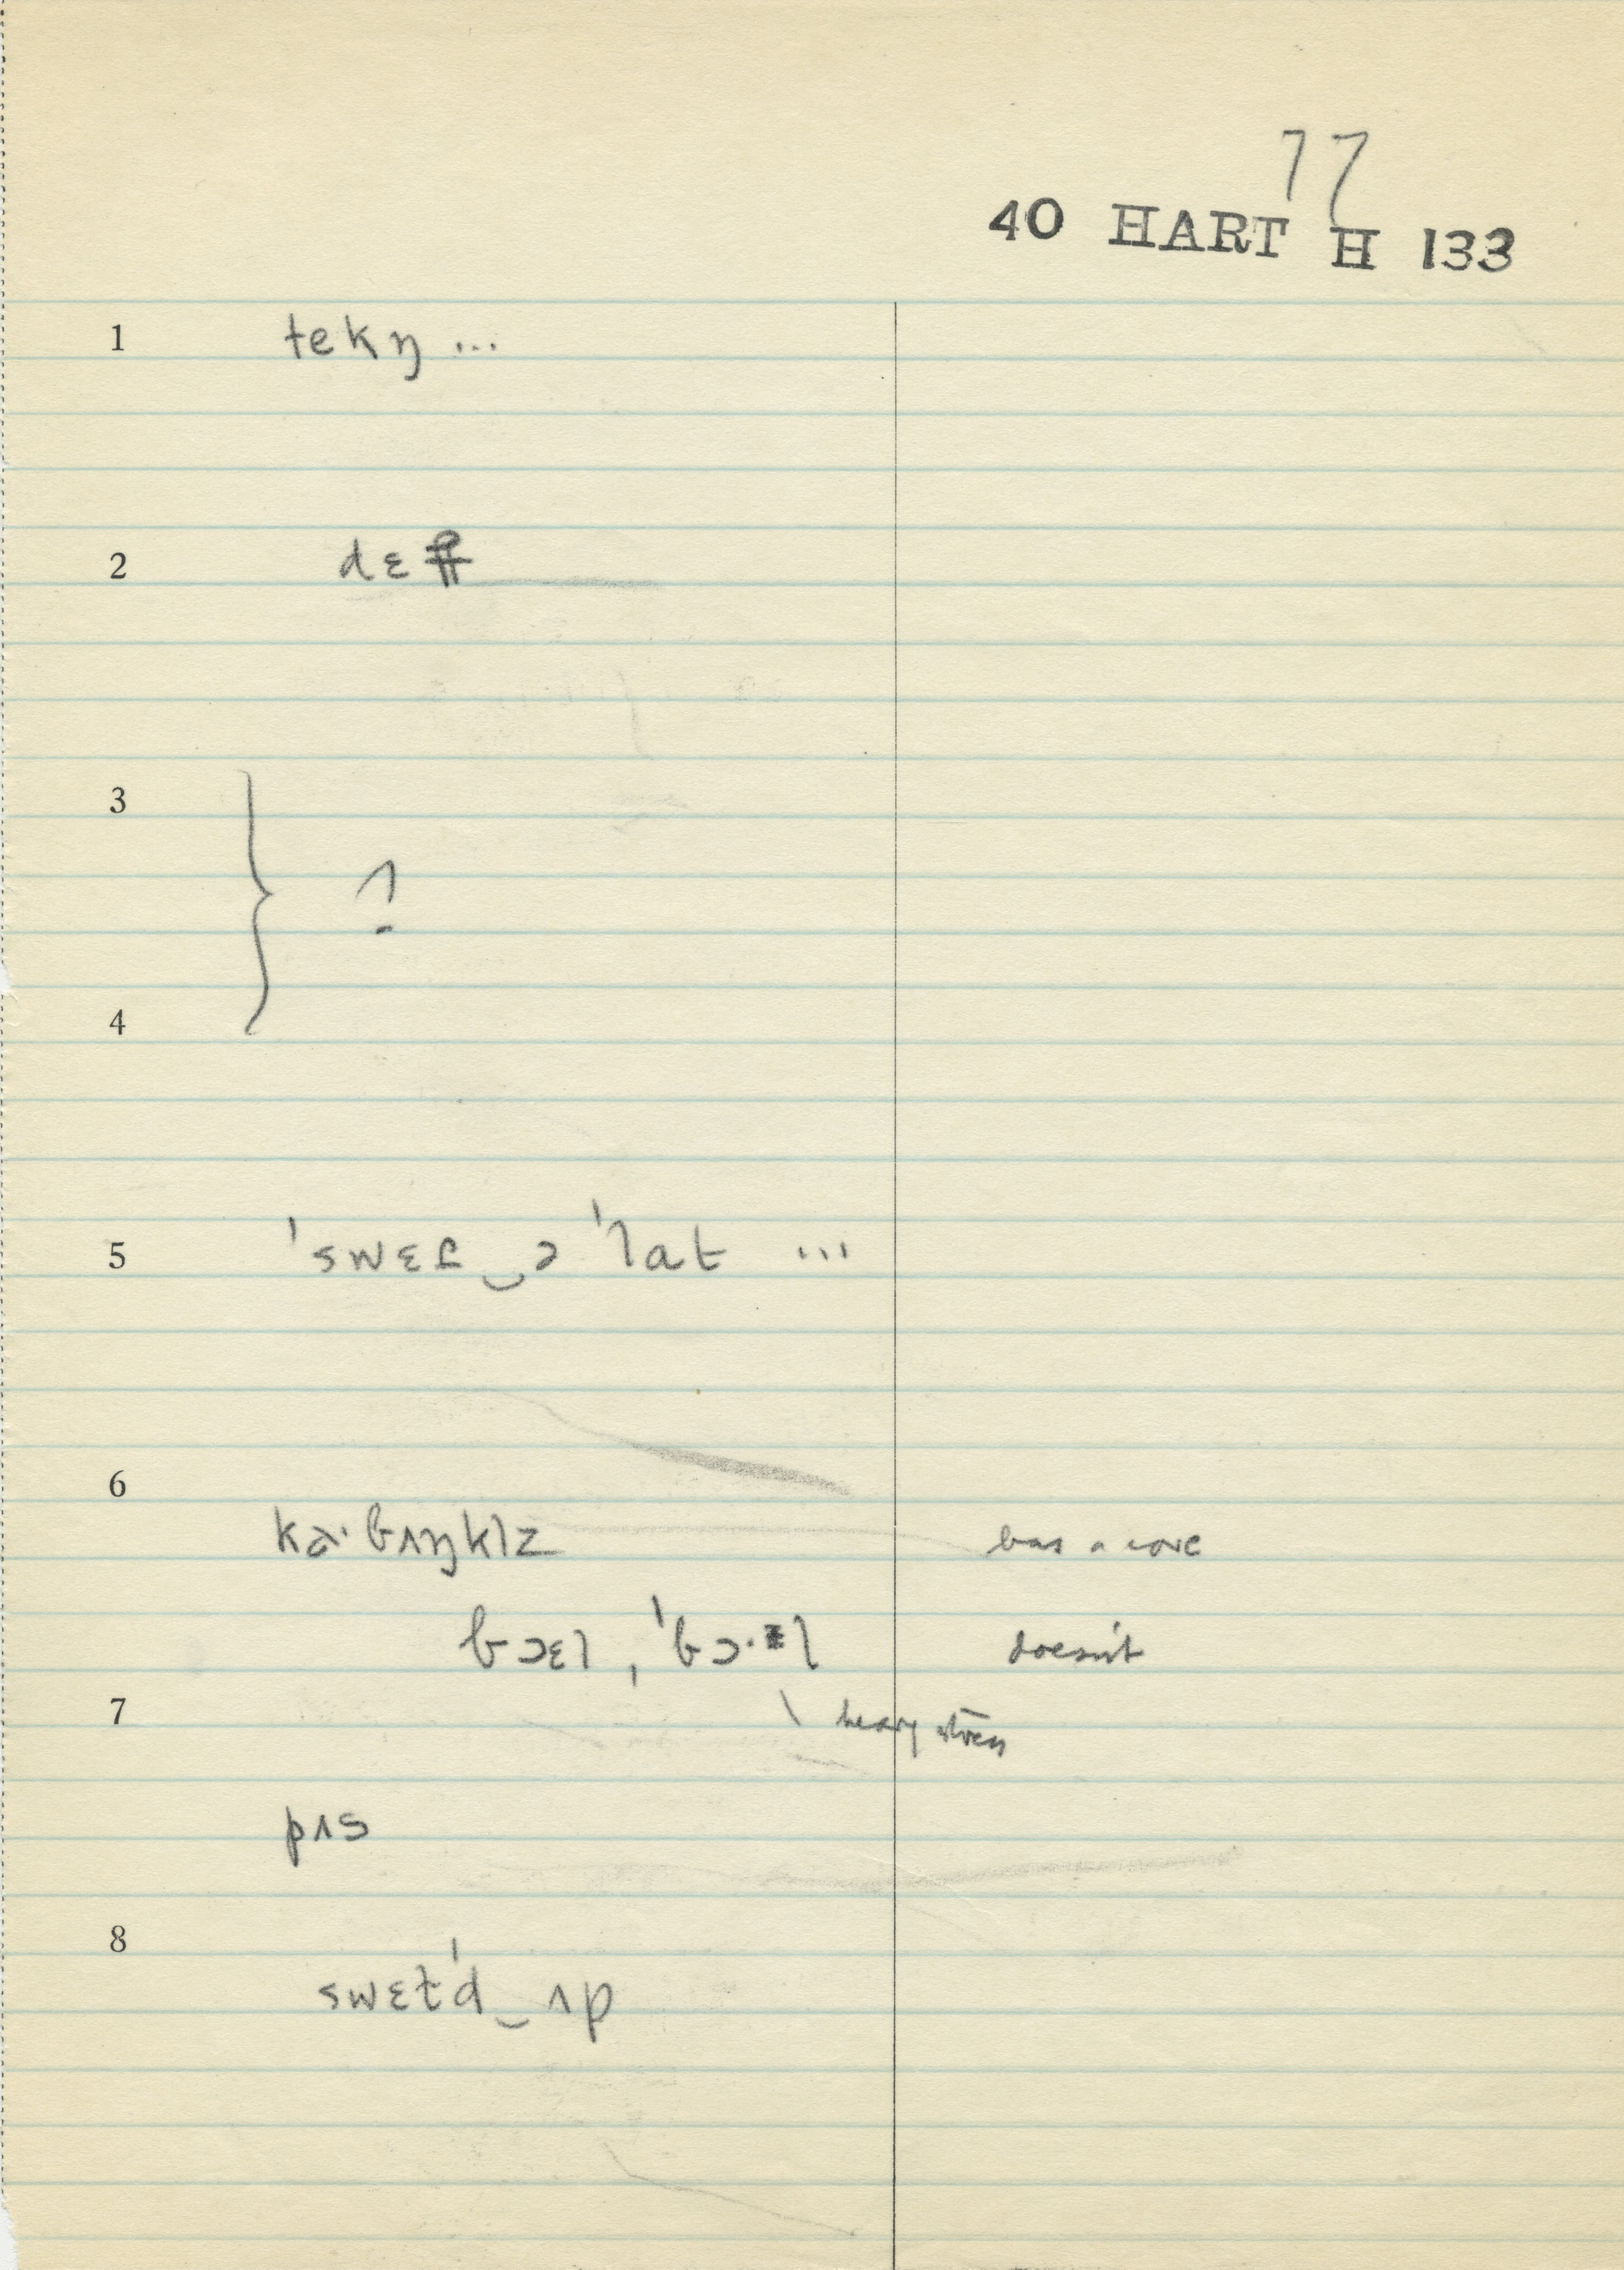 77
40 HART H 133
1 tekŋ ...
2 dɛf
3
?
4
5 ˈswɛɾ‿ə ˈlat ...
6
ka·bʌŋklz has a core
bɔɛl , ˈbɔ·l doesn't
7 \ heavy stress
pʌs
8
swɛtˈd‿ʌp